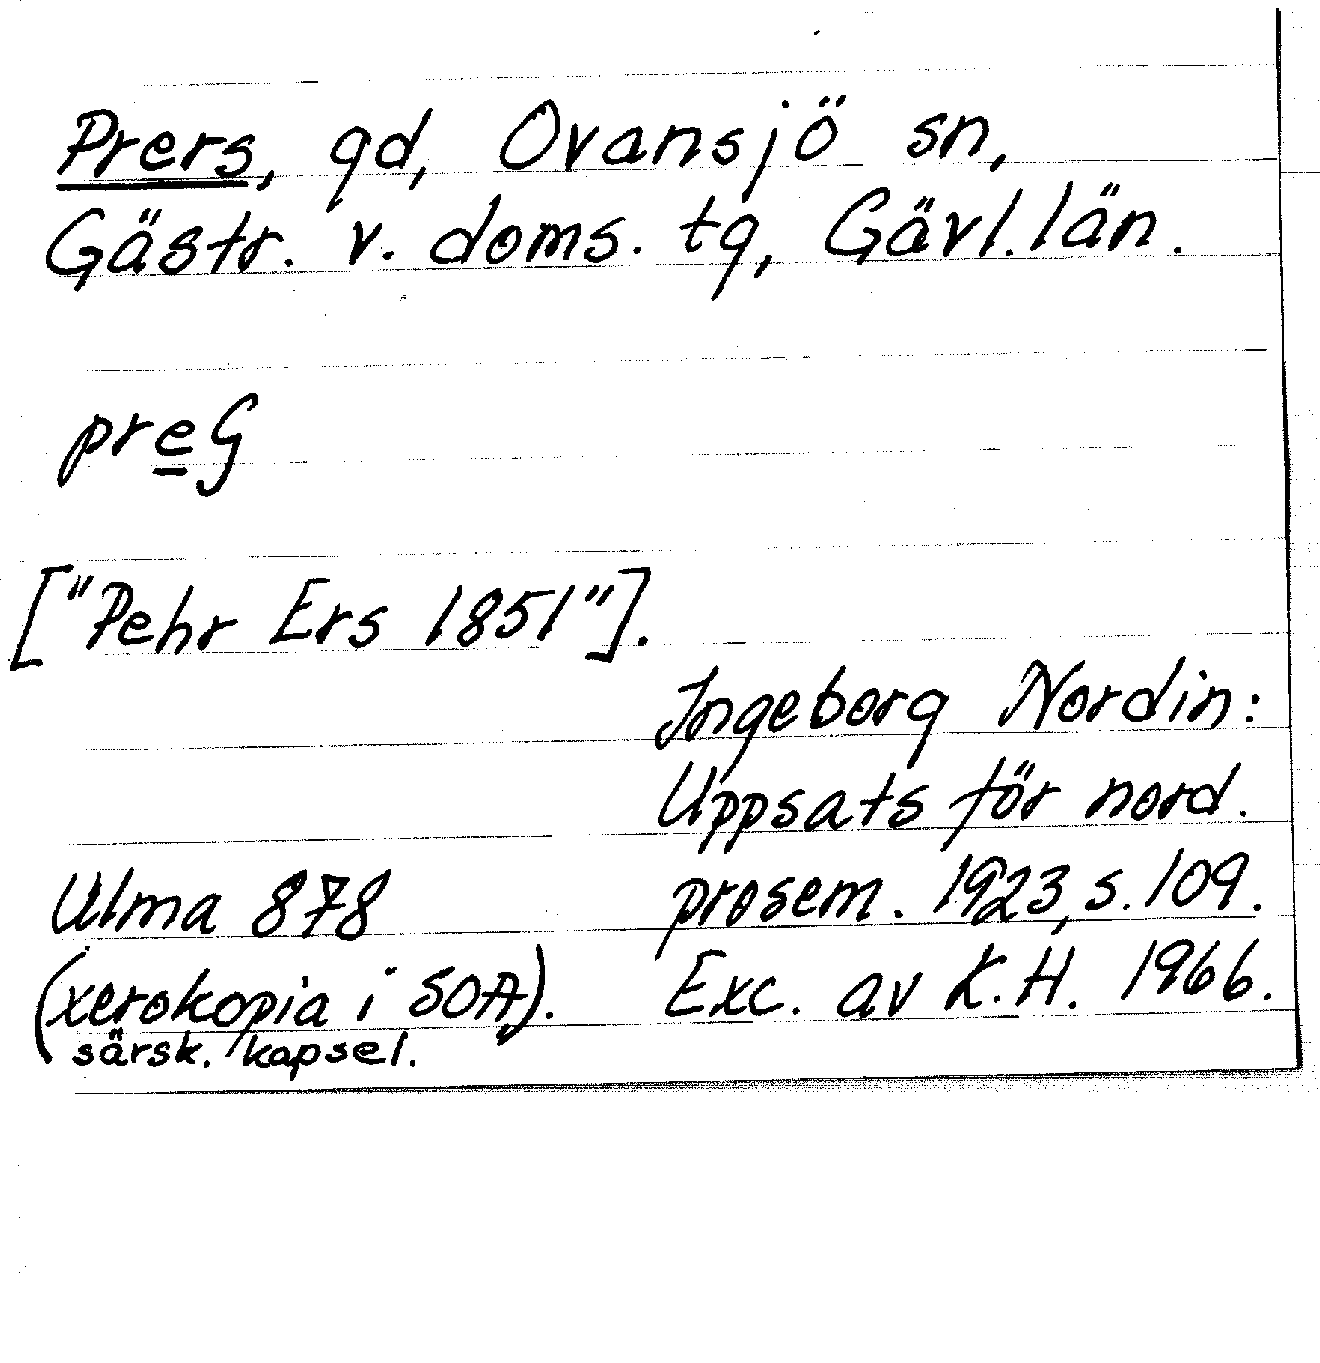 Prers, gd, Ovansjö sn,
Gästr. v. doms. tg, Gävl. län.
preG
["Pehr Ers 1851"].
Ingeborg Nordin:
Uppsats för nord.
prosem. 1923, s. 109.
Exc. av K.H. 1966.
Ulma 878
(xerokopia i SOA).
särsk. kapsel.